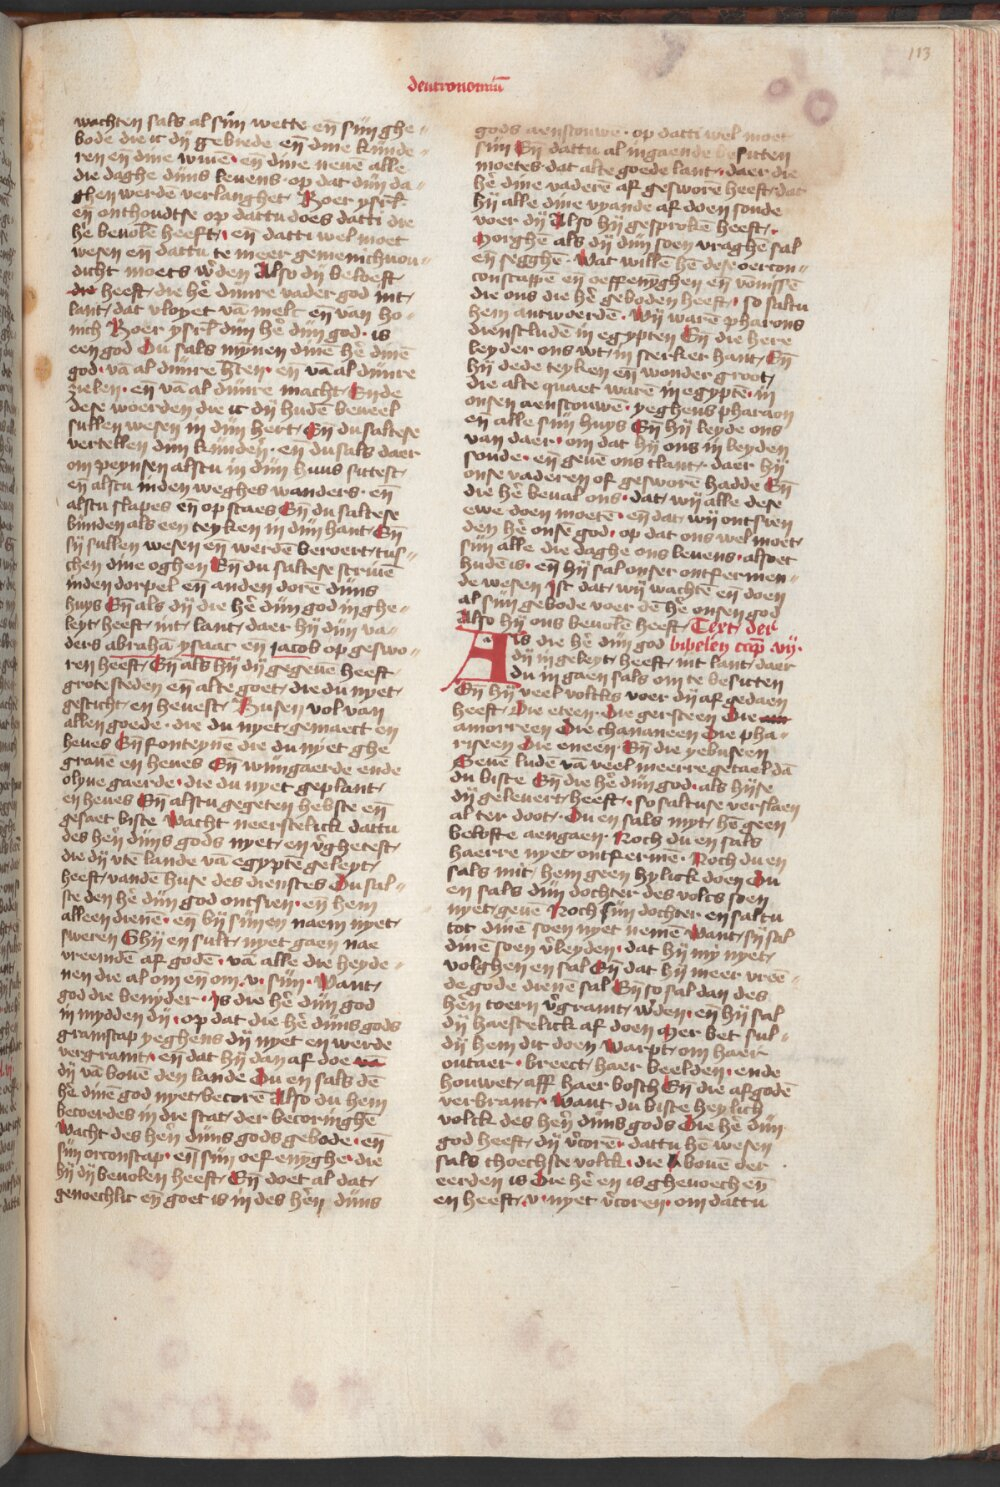 113
deutronomiū
wachten sals al sijn wette en̄ sijn ghe-
bode die ic dij gebiede en̄ dine kinde-
ren en̄ dine wiue· en̄ dine neuē alle
die daghe dijns leuens· op dat dijn da-
ghen werdē verlanghet Hoer ysrl̄
en̄ onthoudtse op dattu does datti die
hē beuolē heeft, en̄ datti wel moet
wesen en̄ dattu te meer gemenichuou-
dicht moets w̄den Also dij beloeft
die heeft, die hē dijnre vader god int,
lant, dat vloyet vā melc en̄ van ho-
nich Hoer ysrl̄ dijn hē dijn god· is
een god Du sals mynen dinē hē dinē
god· vā al dijnre h̄ten· en̄ vā al dijnre
zielen· en̄ vā al dijnre macht, Ende
dese woerden die ic dij hudē beueel
sullen wesen in dijn hert, En̄ du saltese
vertellen dijn kijnden· en̄ du sals daer
om peynsen alstu in dijn huus sittest,
en̄ alstu inden weghes wanders· en̄
alstu slapes en̄ op staes En̄ du saltese
binden als een teyken in dijn hant, En̄
sij sullen wesen en̄ werdē beroert, tus-
chen dine oghen En̄ du saltese scriuē
inden dorpel en̄ anden dorē dijns
huys En̄ als dij die hē dijn god in ghe-
leyt, heeft, int, lant, daer hij dijn va-
ders abrahā ysaac en̄ jacob op geswo-
ren heeft, En̄ als hij dij gegeuē heeft
grote steden en̄ alte goet, die du nyet,
gesticht, en heuest, Husen vol van
allen goede· die du nyet gemaect en
heues En̄ fonteyne die du nyet ghe
grauē en heues En̄ wijngaerde ende
olyue gaerde· die du nyet geplant,
en heues En̄ alstu gegeten hebste en̄
gesaet biste Wacht neerstelick dattu
des hēn dijns gods nyet, en v̄ghetest,
die dij vtē lande vā egyptē geleyt,
heeft, vanden huse des dienstes Du sal-
ste den hē dijn god ontsien· en̄ hem
alleen dienē· en̄ bij sijnen naem nyet,
sweren Ghij en sult, nyet gaen nae
vreemdē af godē· vā alle die heyde-
nen die al om en̄ om v· sijn· Want,
god die benyder· Is die hē dijn god
in mydden dij· op dat die hē dijns gods
gramscap yeghens dij nyet en werde
vergramt, en̄ dat hij dan af doe vā
dij vā bouē den lande Du en sals dē
hē dinē god nyet, becorē Also du hem
becoerdes in die stat, der becoringhē
Wacht des hēn dijns gods gebode· en̄
sijn orconscap· en̄ sijn oefenyghe· die
hij dij beuolen heeft, En̄ doet al dat,
genoechlic en̄ goet is in des hēn dijns
gods aenscouwe· op datti wel moet
sijn En̄ dattu al ingaende besitten
moetes· dat alte goede lant, daer die
hē dine vaderē af geswore heeft, dat
hij alle dine vyande af doen soude
voer dij Also hij gesprokē heeft,
Morghē als dij dijn soen vraghē sal
en̄ segghē· Wat willē hē dese oercon-
conscappē en̄ oeffenynghen en̄ vōnissē
die ons die hē geboden heeft, so saltu
hem antwoerdē· Wij warē pharaons
dienstludē in egypten En̄ die here
leyder ons wt, in sterker hant, En̄
hij dede teyken en̄ wonder groot,
die alte quaet warē in egyptē· in
onsen aenscouwē· yeghens pharaon
en̄ alle sijn huys En̄ hij leyde ons
van daer· om dat hij ons in leyden
soude· en̄ geuē ons tlant, daer hij
onse vaderen of geswore hadde En̄
die hē beual ons· dat, wij alle dese
ewe doen moetē· en̄ dat, wij ontsien
den hē onsē god· op dat ons wel moet,
sijn alle die daghe ons leuens· alsoet
hudē is· en̄ hij sal onser ontfermen-
de wesen Ist dat, wij wachtē en̄ doen
al sijn gebode voer dē hē onsen god
Also hij ons beuolē heeft, Text, der
Als die hē dijn god bibelen cap̄ vij·
dij in geleyt, heeft, int lant, daer
du in gaen sals om te besitten
En̄ hij veel volcks voer dij af gedaen
heeft, Die eteen· Die gersteen Die
amorreen Die chananeen Die pha-
riseen Die eneen· En̄ die yebuseen
Seuē ludē vā veel meerre getael dā
du biste En̄ die hē dijn god· als hijse
dij geleuert, heeft, so saltuse verslaen
al ter doot· Du en sals myt, hē geen
belofte aengaen· Noch du en sals
haerre nyet, ontfermē· Noch du en
sals mit, hem geen hylick doen Du
en sals dijn dochter des volcs soen
nyet, geuē Noch sijn dochter en saltu
tot dinē soen nyet nemē Want, sij sal
dinē soen v̄leyden· dat hij my nyet,
volghen en sal En̄ dat hij meer vree-
de gode dienē sal En̄ so sal dan des
hēn toern v̄gramt, w̄den· en̄ hij sal
dij haestelick af doen Mer bet sul-
dij hem dit doen Warpt, om haer
outaer· breect, haer beelden· ende
houwet, aff haer bosch En̄ die afgodē
verbrant, Want du biste heylich
volck des hēn dijns gods Die hē dijn
god heeft, dij v̄corē· dattu hē wesen
sals thoechste volck· die bouē der
eerden is Die hē en is ghevoech en̄
en heeft, v· nyet v̄coren· om dattu